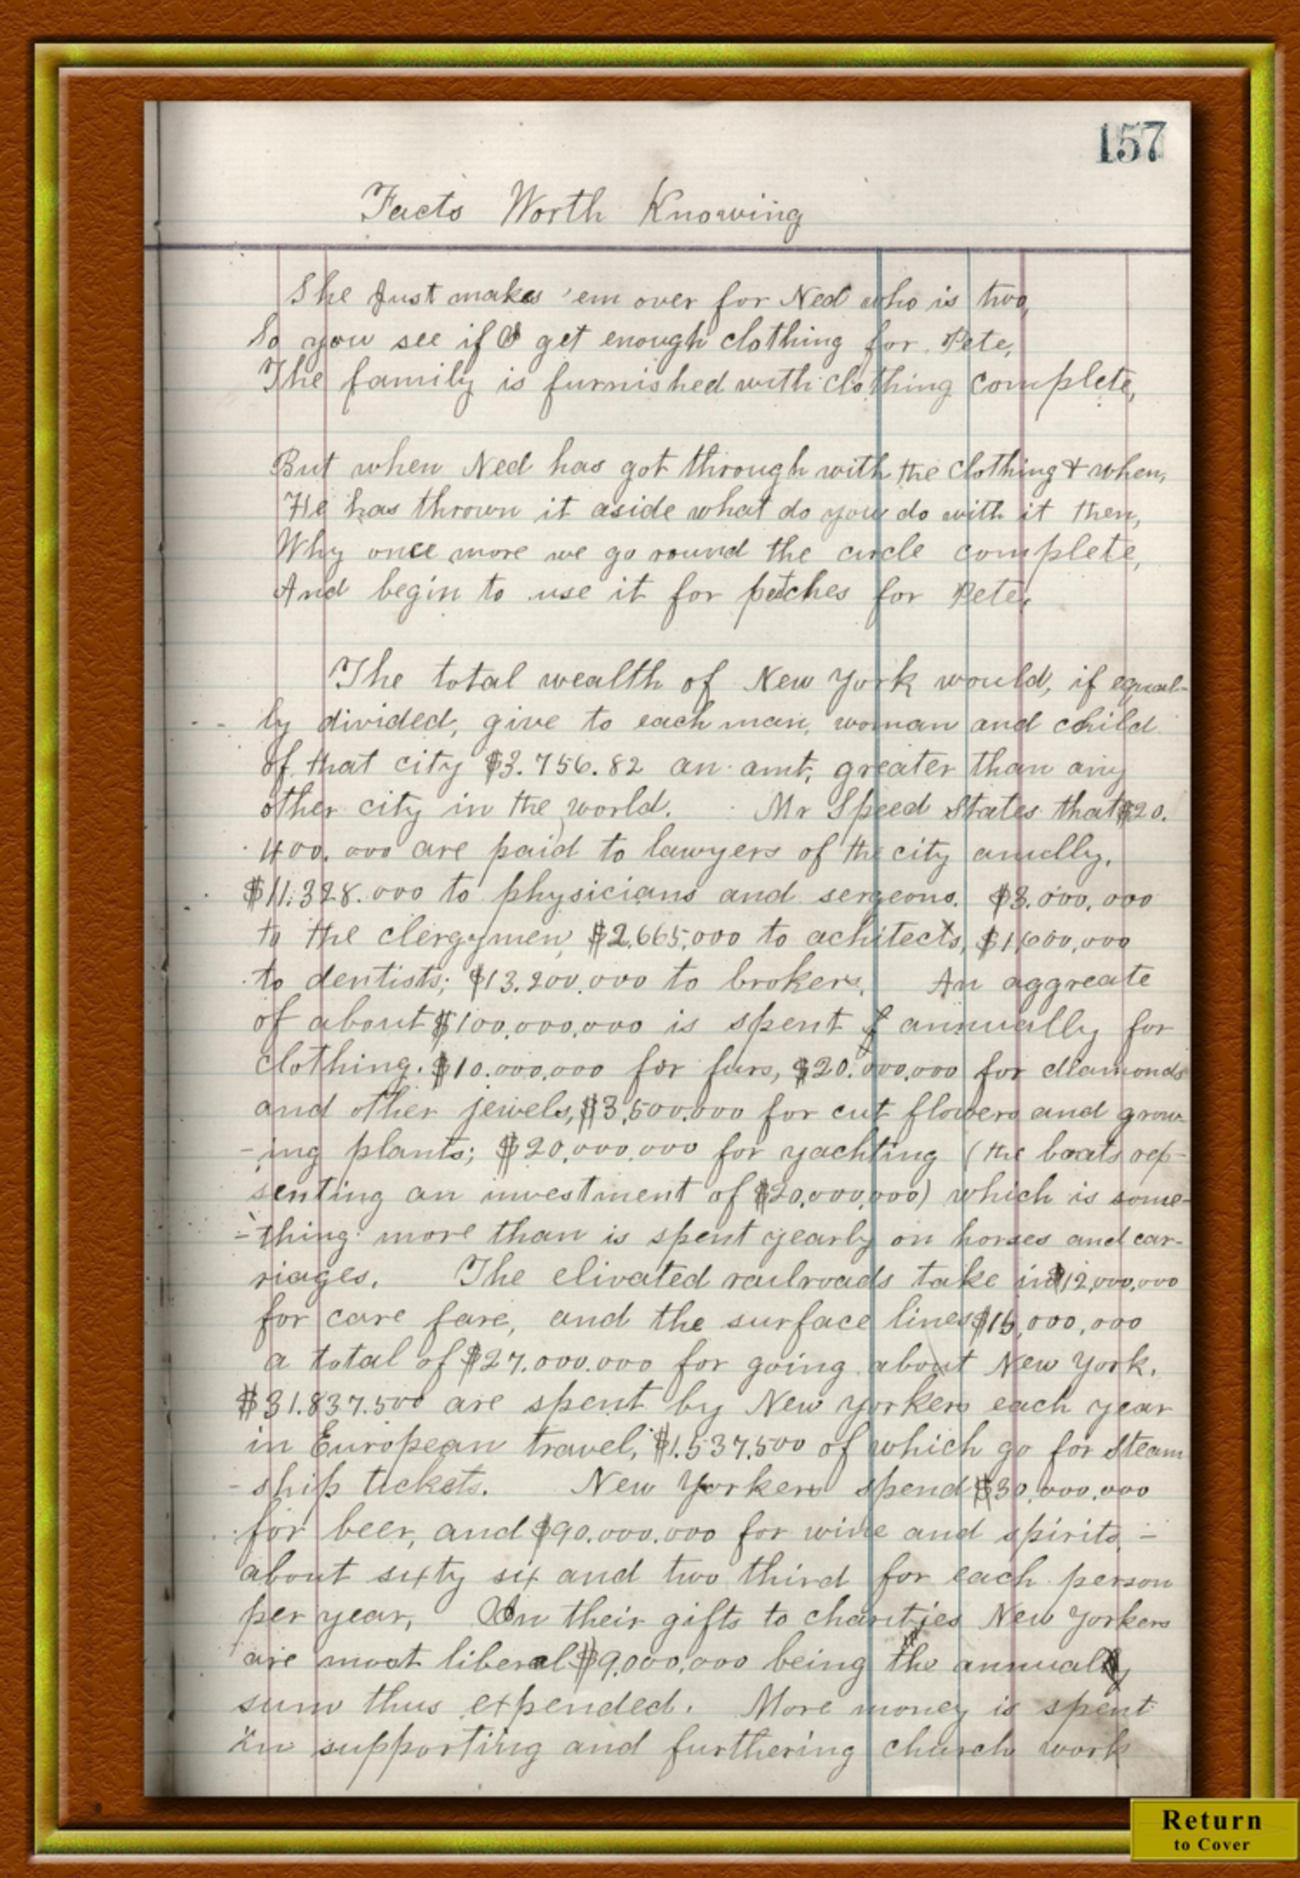 157
Facts Worth Knowing
She Just makes 'em over for Ned who is two,
So you see if I get enough clothing for Pete,
The family is furnished with clothing complete,
But when Ned has got through with the clothing & when,
He has thrown it aside what do you do with it then,
Why once more we go round the circle complete,
And begin to use it for patches for Pete.
The total wealth of New York would, if equal-
ly divided, give to each man, woman and child
of that city $3.756.82 an amt, greater than any
other city in the world. Mr Speed States that $20.
400.000 are paid to lawyers of the city anually.
$11.328.000 to physicians and sergeons. $3.000,000
to the clergymen, $2,665,000 to achitects, $1,600,000
to dentists; $13.200.000 to brokers. An aggreate
of about $100,000,000 is spent annually for
clothing. $10.000.000 for furs, $20.000,000 for diamonds
and other jewels, $3,500.000 for cut flowers and grow-
-ing plants; $20,000.000 for yachting (the boats rep-
senting an investment of $20,000,000) which is some-
-thing more than is spent yearly on horses and car-
riages. The elivated railroads take in $12,000,000
for care fare, and the surface lines $15,000,000
a total of $27.000.000 for going about New York.
$31.837.500 are spent by New Yorkers each year
in European travel, $1.537.500 of which go for steam
-ship tickets. New Yorkers spend $30,000.000
for beer, and $90.000.000 for wine and spirits -
about sixty six and two third for each person
per year, In their gifts to charities New Yorkers
are most liberal $9,000,000 being the annual
sum thus expended. More money is spent
in supporting and furthering church work
Return
to Cover